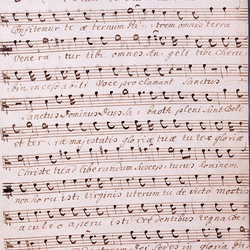 Confitemur te æ ternum Pa trem omnis terra
Venera tur tibi omnes An geli tibi Cheru
bin incessa bili Voce proclamant Sanctus
Sanctus Dominus Deus Sa baoth pleni sunt Coeli
et ter ra majestatis gloriæ tuæ tu rex gloriæ
Christe tu ad liberandum suscep turus hominem
non horu isti Virginis uterum tu de victo mortis
aculeo aperu isti Credentibus regna coe
Dei sedes in gloria